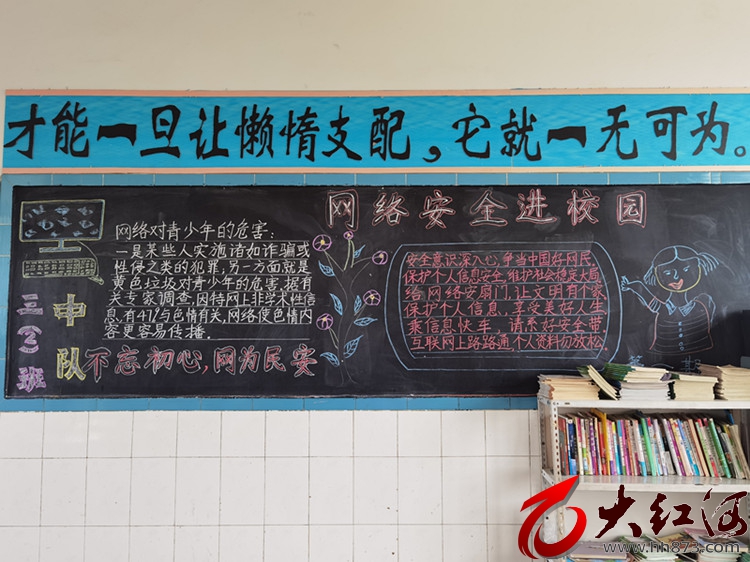 才能一旦让懒惰支配，它就一无可为。
网络安全进校园
网络对青少年的危害：
一是某些人实施诸如诈骗或
性侵之类的犯罪，另一方面就是
黄色垃圾对青少年的危害，据有
关专家调查，因特网上非学术性信
息，有47%与色情有关，网络使色情内
容更容易传播。
三(2)班
中队
不忘初心，网为民安
安全意识深入心，争当中国好网民，
保护个人信息安全，维护社会稳定大局
给网络安扇门，让文明有个家，
保护个人信息，享受美好人生
乘信息快车，请系好安全带
互联网上路路通，个人资料勿放松
大红河
www.hh873.com